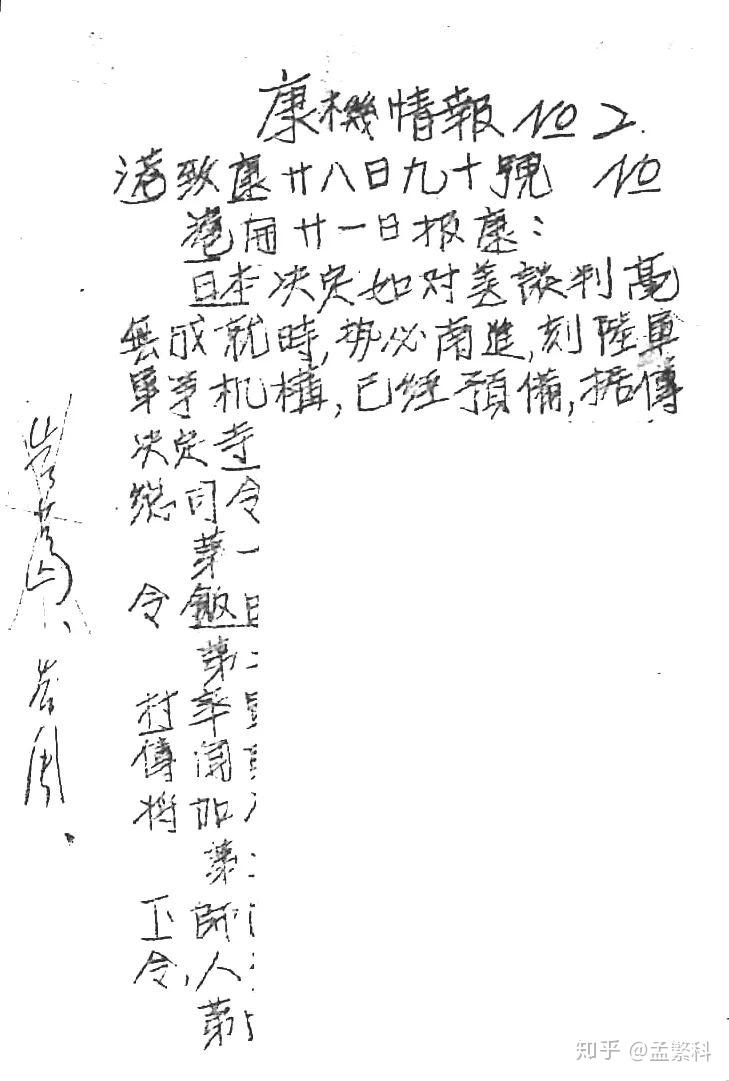 康機情報 No 2.
港致康廿八日九十號 No
港闻廿一日报康：
日本决定如对美談判毫
無成就時,势必南進,刻陸軍
軍事机構,已经預備,据傳
决定寺
総司令
第一
令飯田
第二
村率
傳聞
将如
第
下師
令,人
第
知乎 @孟繁科